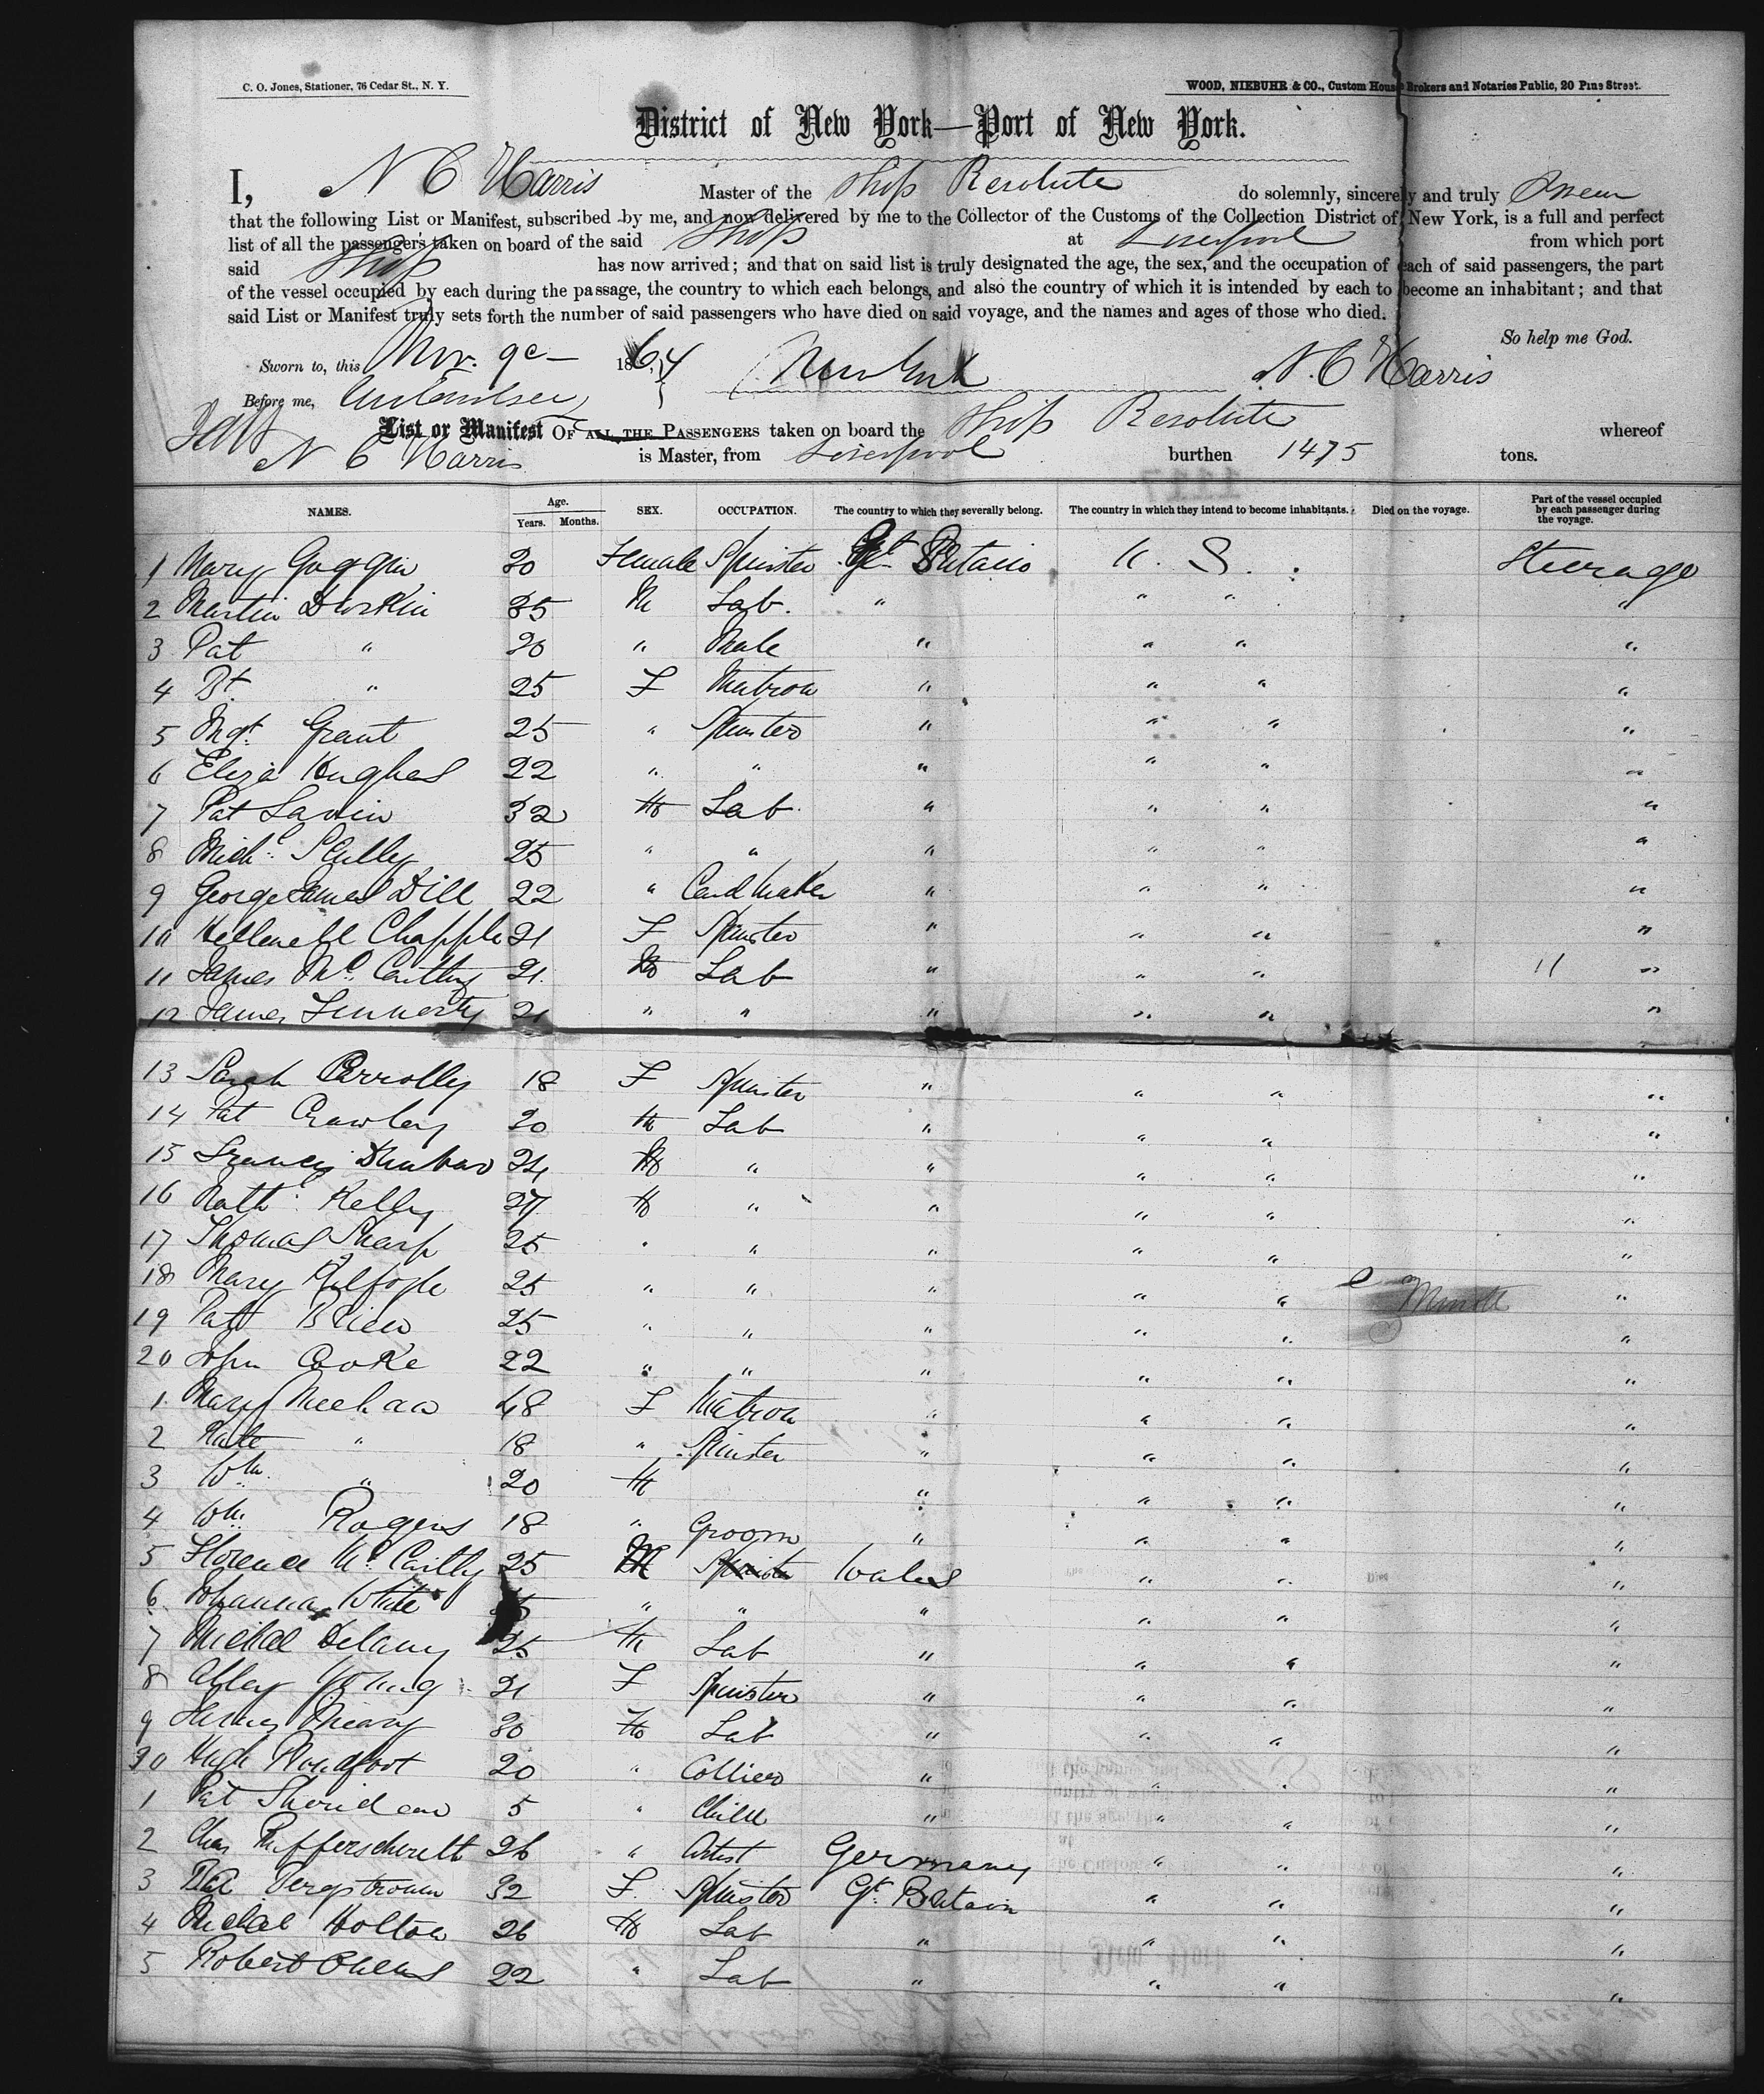 C. O. Jones, Stationer, 76 Cedar St., N. Y.
WOOD, NIEBUHR & CO., Custom House Brokers and Notaries Public, 20 Pine Street.
District of New York—Port of New York.
I, N C Harris Master of the Ship Resolute do solemnly, sincerely and truly Swear
that the following List or Manifest, subscribed by me, and now delivered by me to the Collector of the Customs of the Collection District of New York, is a full and perfect
list of all the passengers taken on board of the said Ship at Liverpool from which port
said Ship has now arrived; and that on said list is truly designated the age, the sex, and the occupation of each of said passengers, the part
of the vessel occupied by each during the passage, the country to which each belongs, and also the country of which it is intended by each to become an inhabitant; and that
said List or Manifest truly sets forth the number of said passengers who have died on said voyage, and the names and ages of those who died.
So help me God.
Sworn to, this Nov. 9 1864 New York N. C Harris
Before me,
List or Manifest OF ALL THE PASSENGERS taken on board the Ship Resolute whereof
N C Harris is Master, from Liverpool burthen 1475 tons.
NAMES. Age. Years. Months. SEX. OCCUPATION. The country to which they severally belong. The country in which they intend to become inhabitants. Died on the voyage. Part of the vessel occupied by each passenger during the voyage.
1 Mary Goggin 20 Female Spinster Gt Britain U. S. Steerage
2 Martin Durkin 35 M Lab. " " " "
3 Pat " 20 " Male " " " "
4 Bt " 25 F Matron " " " "
5 Mgt Grant 25 " Spinster " " " "
6 Eliza Hughes 22 " " " " " "
7 Pat Lavin 32 M Lab " " " "
8 Michl Scully 25 " " " " " "
9 George James Dill 22 " Card Maker " " " "
10 Chapple 21 F Spinster " " " "
11 James McCarthy 21 M Lab " " " 11 "
12 James Finnerty 21 " " " " " "
13 Sarah 18 F Spinster " " " "
14 Pat Crawley 20 M Lab " " " "
15 Francis Dunbar 24 M " " " " "
16 Kelly 27 M " " " " "
17 Thomas Sharp 25 " " " " " "
18 Mary Kilfoyle 25 " " " " " "
19 Patt Brien 25 " " " " " "
20 John Cooke 22 " " " " " "
1 Mary Meehan 48 F Matron " " " "
2 Kate " 18 " Spinster " " " "
3 Wm " 20 M " " " "
4 Wm Rogers 18 " Groom " " " "
5 Florence McCarthy 25 M Spinster Wales " " "
6 Johanna White " " " " " "
7 Michael Delany 25 M Lab " " " "
8 Abbey Young 21 F Spinster " " " "
9 30 M Lab " " " "
30 Hugh Proudfoot 20 " Collier " " " "
1 Pat Sheridan 5 " Child " " " "
2 Chas 26 " Artist Germany " " "
3 Bergstrom 32 F. Spinster Gt Britain " " "
4 Michael Holton 26 M Lab " " " "
5 Robert Owens 22 " Lab " " " "